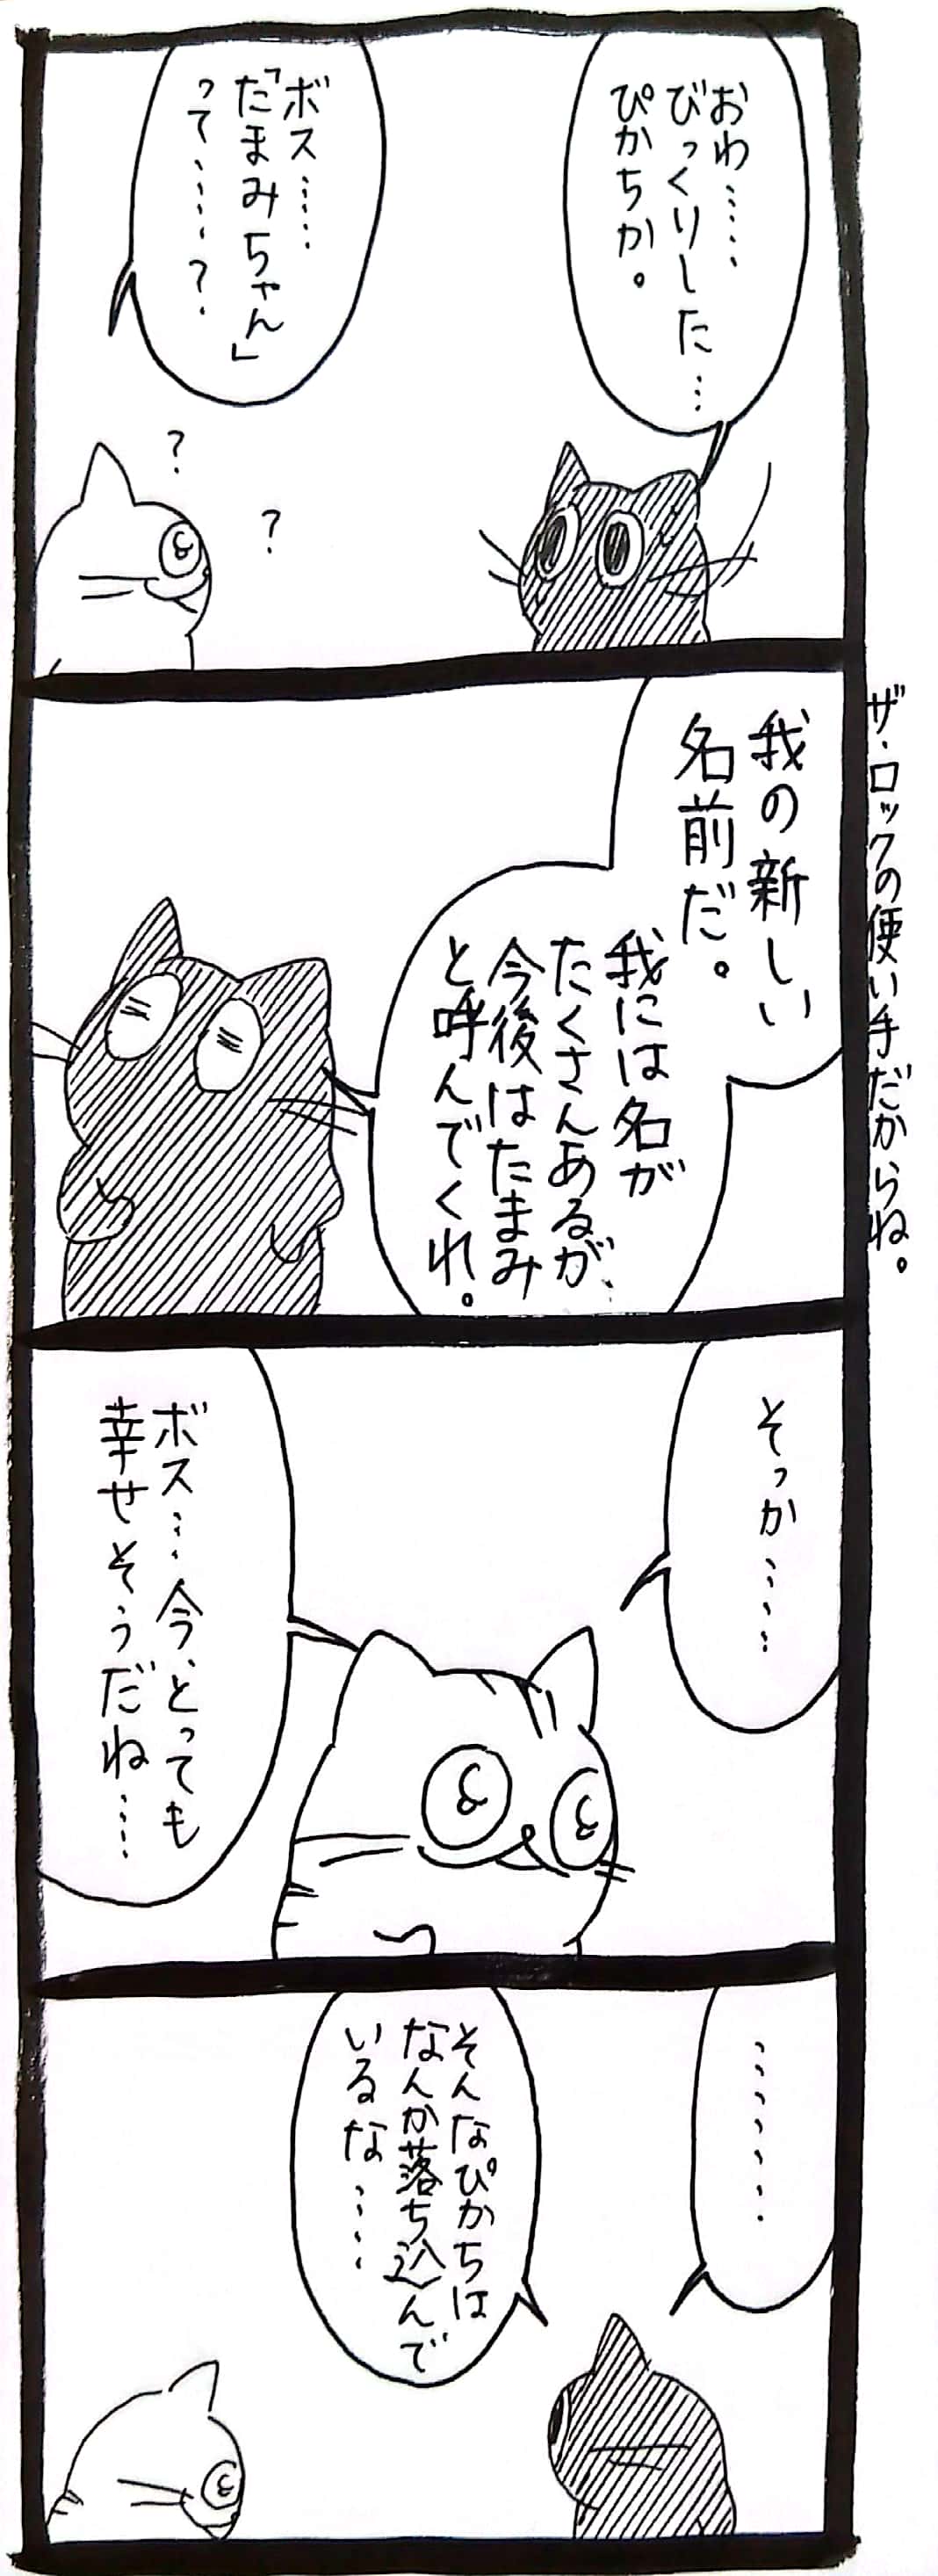 おわ……
びっくりした…
ぴかちか。
ボス……
「たまみちゃん」
って……？
我の新しい
名前だ。
我には名が
たくさんあるが、
今後はたまみ
と呼んでくれ。
ザ・ロックの使い手だからね。
そっか……
ボス…今、とっても
幸せそうだね…
………
そんなぴかちは
なんか落ち込んで
いるな……